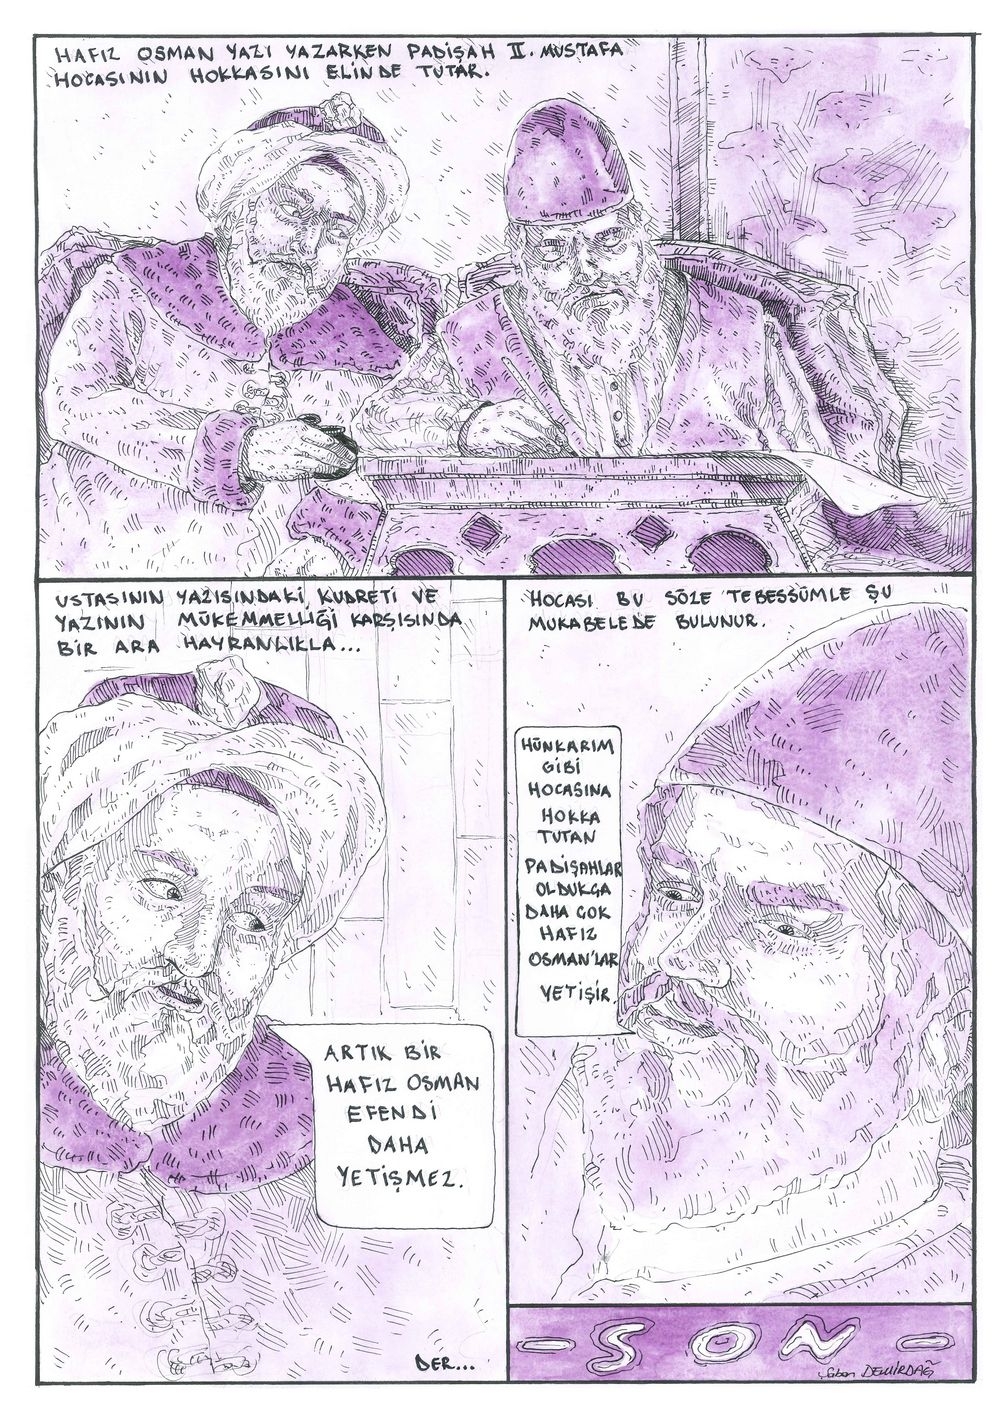 HAFIZ OSMAN YAZI YAZARKEN PADİŞAH II. MUSTAFA
HOCASININ HOKKASINI ELİNDE TUTAR.
USTASININ YAZISINDAKİ KUDRETİ VE
YAZININ MÜKEMMELLİĞİ KARŞISINDA
BİR ARA HAYRANLIKLA...
ARTIK BİR
HAFIZ OSMAN
EFENDİ
DAHA
YETİŞMEZ.
DER...
HOCASI BU SÖZE TEBESSÜMLE ŞU
MUKABELEDE BULUNUR.
HÜNKARIM
GİBİ
HOCASINA
HOKKA
TUTAN
PADİŞAHLAR
OLDUKÇA
DAHA ÇOK
HAFIZ
OSMAN'LAR
YETİŞİR.
- SON -
Şaban DEMİRDAĞ